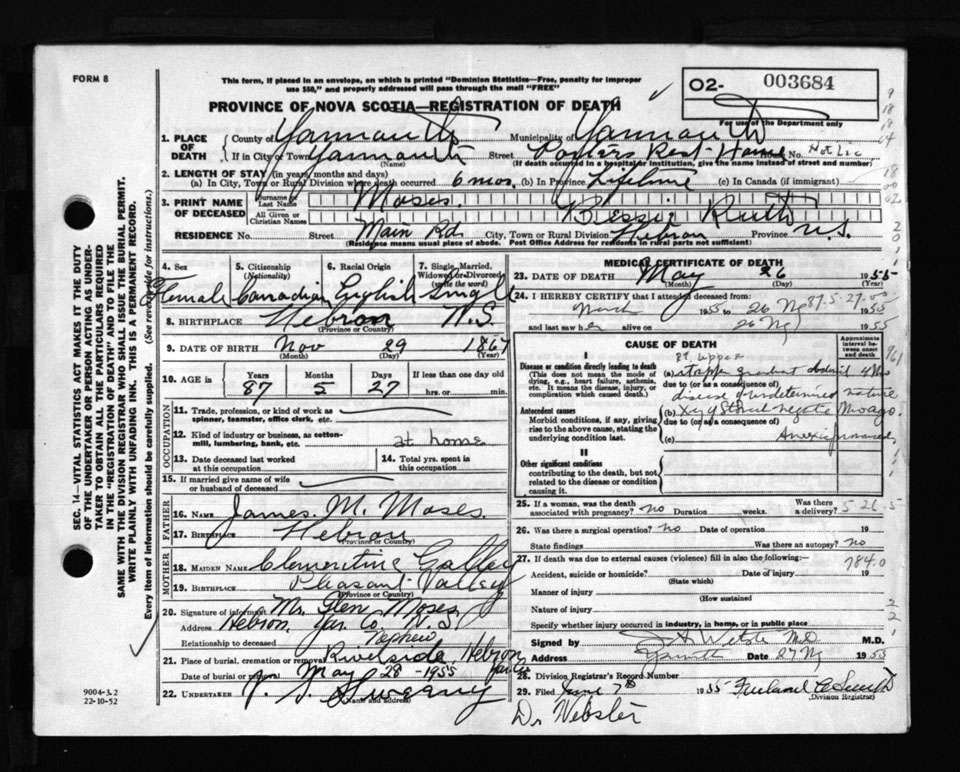 FORM 8
This form, if placed in an envelope, on which is printed "Dominion Statistics—Free, penalty for improper
use $50," and properly addressed will pass through the mail "FREE"
02- 003684
For use of the Department only
PROVINCE OF NOVA SCOTIA—REGISTRATION OF DEATH
1. PLACE OF DEATH County of Yarmouth Municipality of Yarmouth
If in City or Town Yarmouth (Name) Street Rest Home No. Not Lic
(If death occurred in a hospital or institution, give the name instead of street and number)
2. LENGTH OF STAY (in years, months and days)
(a) In City, Town or Rural Division where death occurred 6 mos. (b) In Province Lifetime (c) In Canada (if immigrant)
3. PRINT NAME OF DECEASED Surname or Last Name Moses
All Given or Christian Names Bessie Ruth
RESIDENCE No. Street Main Rd. City, Town or Rural Division Hebron Province N.S.
(Residence means usual place of abode. Post Office Address for residents in rural parts not sufficient)
4. Sex Female
5. Citizenship (Nationality) Canadian
6. Racial Origin English
7. Single, Married, Widowed or Divorced (write the word) Single
8. BIRTHPLACE Hebron N.S.
(Province or Country)
9. DATE OF BIRTH Nov 29 1867
(Month) (Day) (Year)
10. AGE in Years Months Days If less than one day old
87 5 27 hrs. or min.
OCCUPATION
11. Trade, profession, or kind of work as
spinner, teamster, office clerk, etc.
12. Kind of industry or business, as cotton-
mill, lumbering, bank, etc. at home
13. Date deceased last worked
at this occupation
14. Total yrs. spent in
this occupation
15. If married give name of wife
or husband of deceased
FATHER
16. NAME James M. Moses
17. BIRTHPLACE Hebron
(Province or Country)
MOTHER
18. MAIDEN NAME Clementine
19. BIRTHPLACE Pleasant Valley
(Province or Country)
20. Signature of informant Mr. Glen Moses
Address Hebron, Yar. Co. N.S.
Relationship to deceased Nephew
21. Place of burial, cremation or removal Riverside Hebron
Date of burial or removal May 28 - 1955
22. UNDERTAKER Sweeny
(Name and address)
MEDICAL CERTIFICATE OF DEATH
23. DATE OF DEATH May 26 1955
(Month) (Day)
24. I HEREBY CERTIFY that I attended deceased from
March 1955 to 26 My 1955
and last saw her alive on 26 My 1955
87.5.27.00
CAUSE OF DEATH
Approximate interval between onset and death
I
Disease or condition directly leading to death
(This does not mean the mode of
dying, e.g., heart failure, asthenia,
etc. It means the disease, injury, or
complication which caused death.)
(a)
due to (or as a consequence of)
disease undetermined nature
Antecedent causes
Morbid conditions, if any, giving
rise to the above cause, stating the
underlying condition last.
(b)
due to (or as a consequence of)
(c)
II
Other significant conditions
contributing to the death, but not
related to the disease or condition
causing it.
25. If a woman, was the death
associated with pregnancy? no Duration weeks. Was there
a delivery?
26. Was there a surgical operation? no Date of operation 19
State findings Was there an autopsy? no
27. If death was due to external causes (violence) fill in also the following:
784.0
Accident, suicide or homicide? Date of injury 19
(State which)
Manner of injury
(How sustained)
Nature of injury
Specify whether injury occurred in industry, in home, or in public place
Signed by M.D.
Address Date 27 My 1955
28. Division Registrar's Record Number
29. Filed June 7th 1955
(Division Registrar)
Dr Webster
SEC. 14—VITAL STATISTICS ACT MAKES IT THE DUTY
OF THE UNDERTAKER OR PERSON ACTING AS UNDER-
TAKER TO OBTAIN ALL THE PARTICULARS REQUIRED
IN THE "REGISTRATION OF DEATH" AND TO FILE THE
SAME WITH THE DIVISION REGISTRAR WHO SHALL ISSUE THE BURIAL PERMIT.
WRITE PLAINLY WITH UNFADING INK. THIS IS A PERMANENT RECORD.
Every item of information should be carefully supplied. (See reverse side for instructions.)
9004-3.2
22-10-52